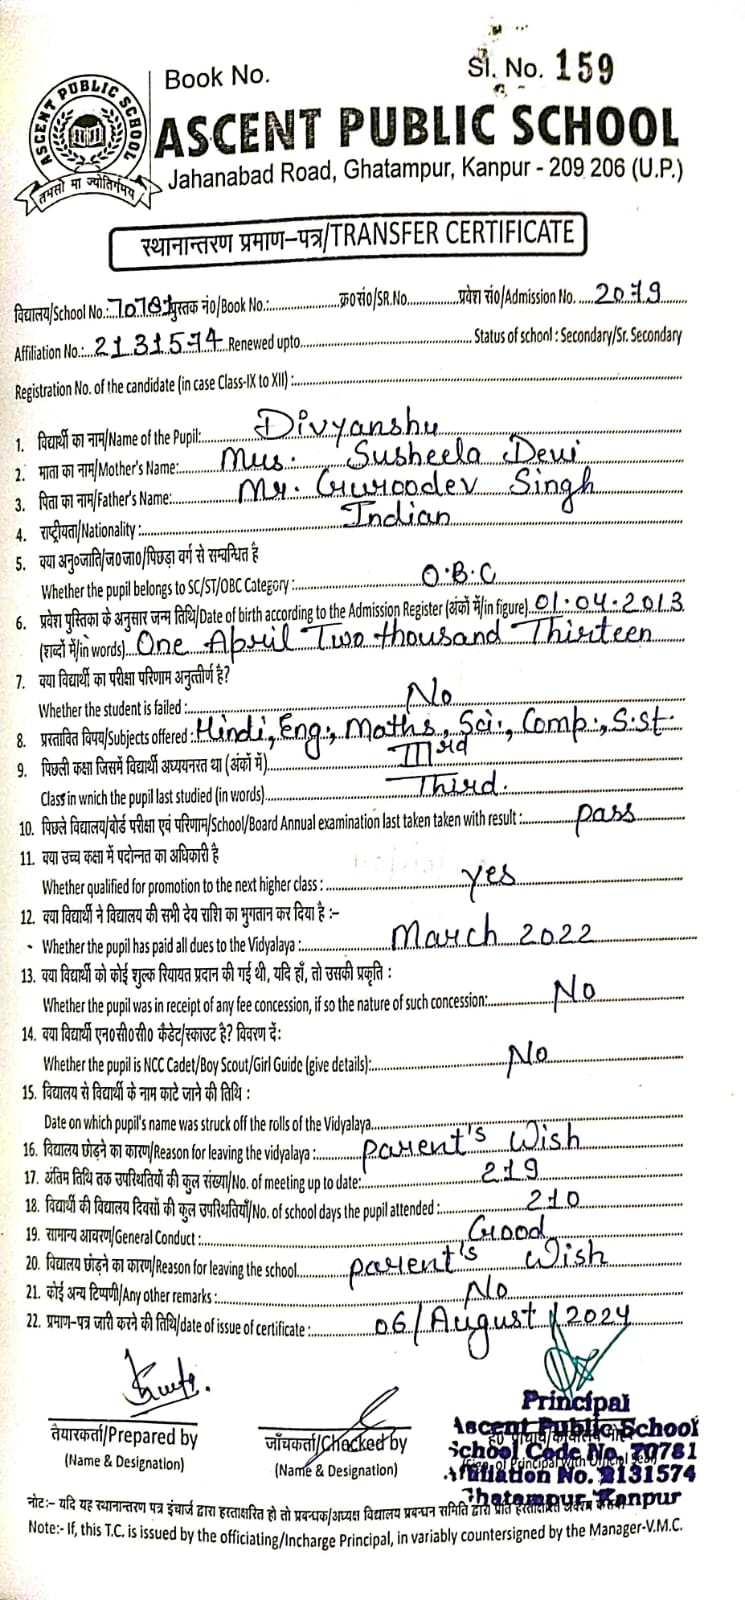 Book No.
Sl. No. 159
ASCENT PUBLIC SCHOOL
तमसो मा ज्योतिर्गमय
ASCENT PUBLIC SCHOOL
Jahanabad Road, Ghatampur, Kanpur - 209 206 (U.P.)
स्थानान्तरण प्रमाण-पत्र/TRANSFER CERTIFICATE
विद्यालय/School No.: 70781 पुस्तक नं०/Book No.:.............क्र०सं०/SR.No.............प्रवेश सं०/Admission No. ....2079......
Affiliation No.:..2131574 Renewed upto.............................. Status of school : Secondary/Sr. Secondary
Registration No. of the candidate (in case Class-IX to XII) :..............................
1. विद्यार्थी का नाम/Name of the Pupil: Divyanshu
2. माता का नाम/Mother's Name: Mrs. Susheela Devi
3. पिता का नाम/Father's Name: Mr. Guroodev Singh
4. राष्ट्रीयता/Nationality : Indian
5. क्या अनु०जाति/ज०जा०/पिछड़ा वर्ग से सम्बन्धित है
Whether the pupil belongs to SC/ST/OBC Category : O.B.C
6. प्रवेश पुस्तिका के अनुसार जन्म तिथि/Date of birth according to the Admission Register (अंकों में/in figure). 01.04.2013
(शब्दों में/in words).. One April Two thousand Thirteen
7. क्या विद्यार्थी का परीक्षा परिणाम अनुत्तीर्ण है?
Whether the student is failed : No
8. प्रस्तावित विषय/Subjects offered : Hindi, Eng., Maths, Sci., Comp., S.St.
9. पिछली कक्षा जिसमें विद्यार्थी अध्ययनरत था (अंकों में) IIIrd
Class in wnich the pupil last studied (in words) Third.
10. पिछले विद्यालय/बोर्ड परीक्षा एवं परिणाम/School/Board Annual examination last taken taken with result : pass
11. क्या उच्च कक्षा में पदोन्नत का अधिकारी है
Whether qualified for promotion to the next higher class : yes
12. क्या विद्यार्थी ने विद्यालय की सभी देय राशि का भुगतान कर दिया है :-
Whether the pupil has paid all dues to the Vidyalaya : March 2022
13. क्या विद्यार्थी को कोई शुल्क रियायत प्रदान की गई थी, यदि हाँ, तो उसकी प्रकृति :
Whether the pupil was in receipt of any fee concession, if so the nature of such concession: No
14. क्या विद्यार्थी एन०सी०सी० कैडेट/स्काउट है? विवरण दें:
Whether the pupil is NCC Cadet/Boy Scout/Girl Guide (give details): No
15. विद्यालय से विद्यार्थी के नाम काटे जाने की तिथि :
Date on which pupil's name was struck off the rolls of the Vidyalaya
16. विद्यालय छोड़ने का कारण/Reason for leaving the vidyalaya : parent's Wish
17. अंतिम तिथि तक उपस्थितियों की कुल संख्या/No. of meeting up to date: 219
18. विद्यार्थी की विद्यालय दिवसों की कुल उपस्थितियाँ/No. of school days the pupil attended : 210
19. सामान्य आचरण/General Conduct : Good
20. विद्यालय छोड़ने का कारण/Reason for leaving the school parent's Wish
21. कोई अन्य टिप्पणी/Any other remarks : No
22. प्रमाण-पत्र जारी करने की तिथि/date of issue of certificate : 06/August/2024
तैयारकर्ता/Prepared by
(Name & Designation)
जाँचकर्ता/Checked by
(Name & Designation)
Principal
Ascent Public School
School Code No. 70781
Affiliation No. 2131574
Ghatampur, Kanpur
नोट:- यदि यह स्थानान्तरण पत्र इंचार्ज द्वारा हस्ताक्षरित हो तो प्रबन्धक/अध्यक्ष विद्यालय प्रबन्धन समिति द्वारा प्रति हस्ताक्षरित
Note:- If, this T.C. is issued by the officiating/Incharge Principal, in variably countersigned by the Manager-V.M.C.